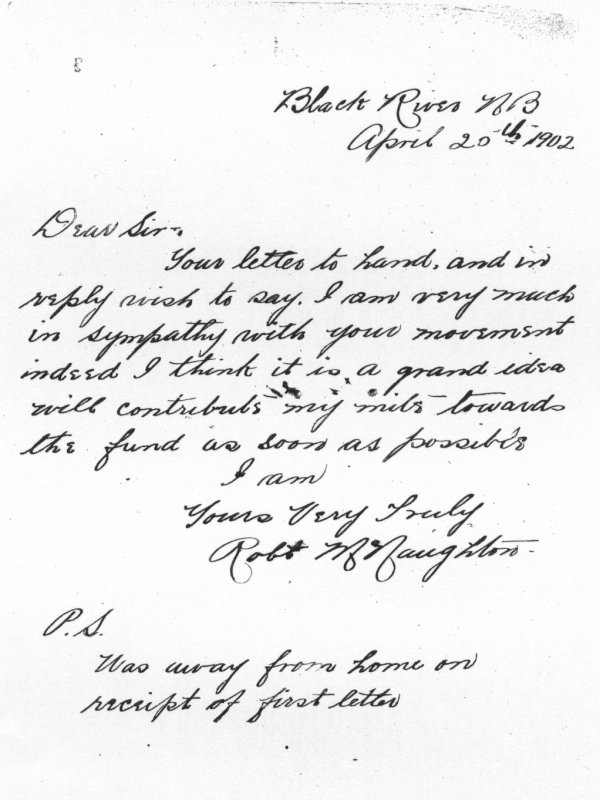 Black River NB
April 25th 1902
Dear Sir,
Your letter to hand, and in
reply wish to say. I am very much
in sympathy with your movement
indeed I think it is a grand idea
will contribute my mite towards
the fund as soon as possible
I am
Yours Very Truly
Robt McNaughton.
P.S.
Was away from home on
receipt of first letter